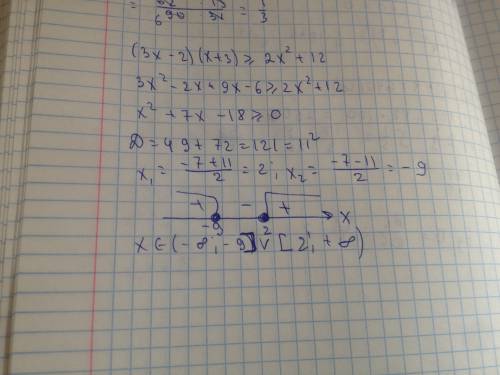 (3x-2)(x+3) ⩾ 2x²+12
3x²-2x+9x-6 ⩾ 2x²+12
x²+7x-18 ⩾ 0
D=49+72=121=11²
x₁=(-7+11)/2=2; x₂=(-7-11)/2=-9
+ - +
-9 2 x
x∈(-∞;-9]∨[2;+∞)